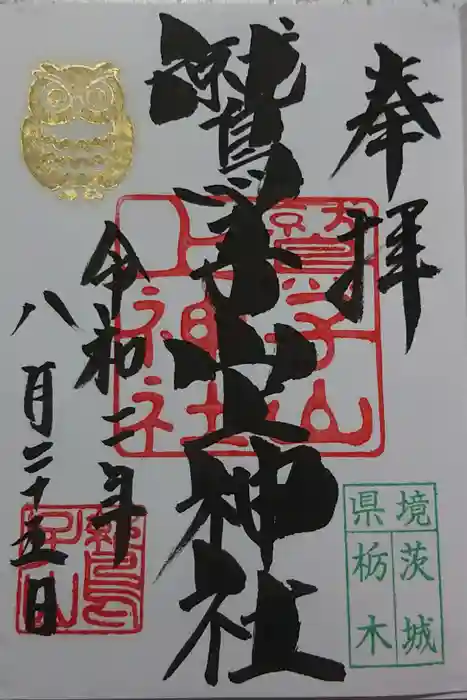 奉拝
鷲子山上神社
鷲子山上神社
令和二年
八月二十五日
県境
茨城
栃木